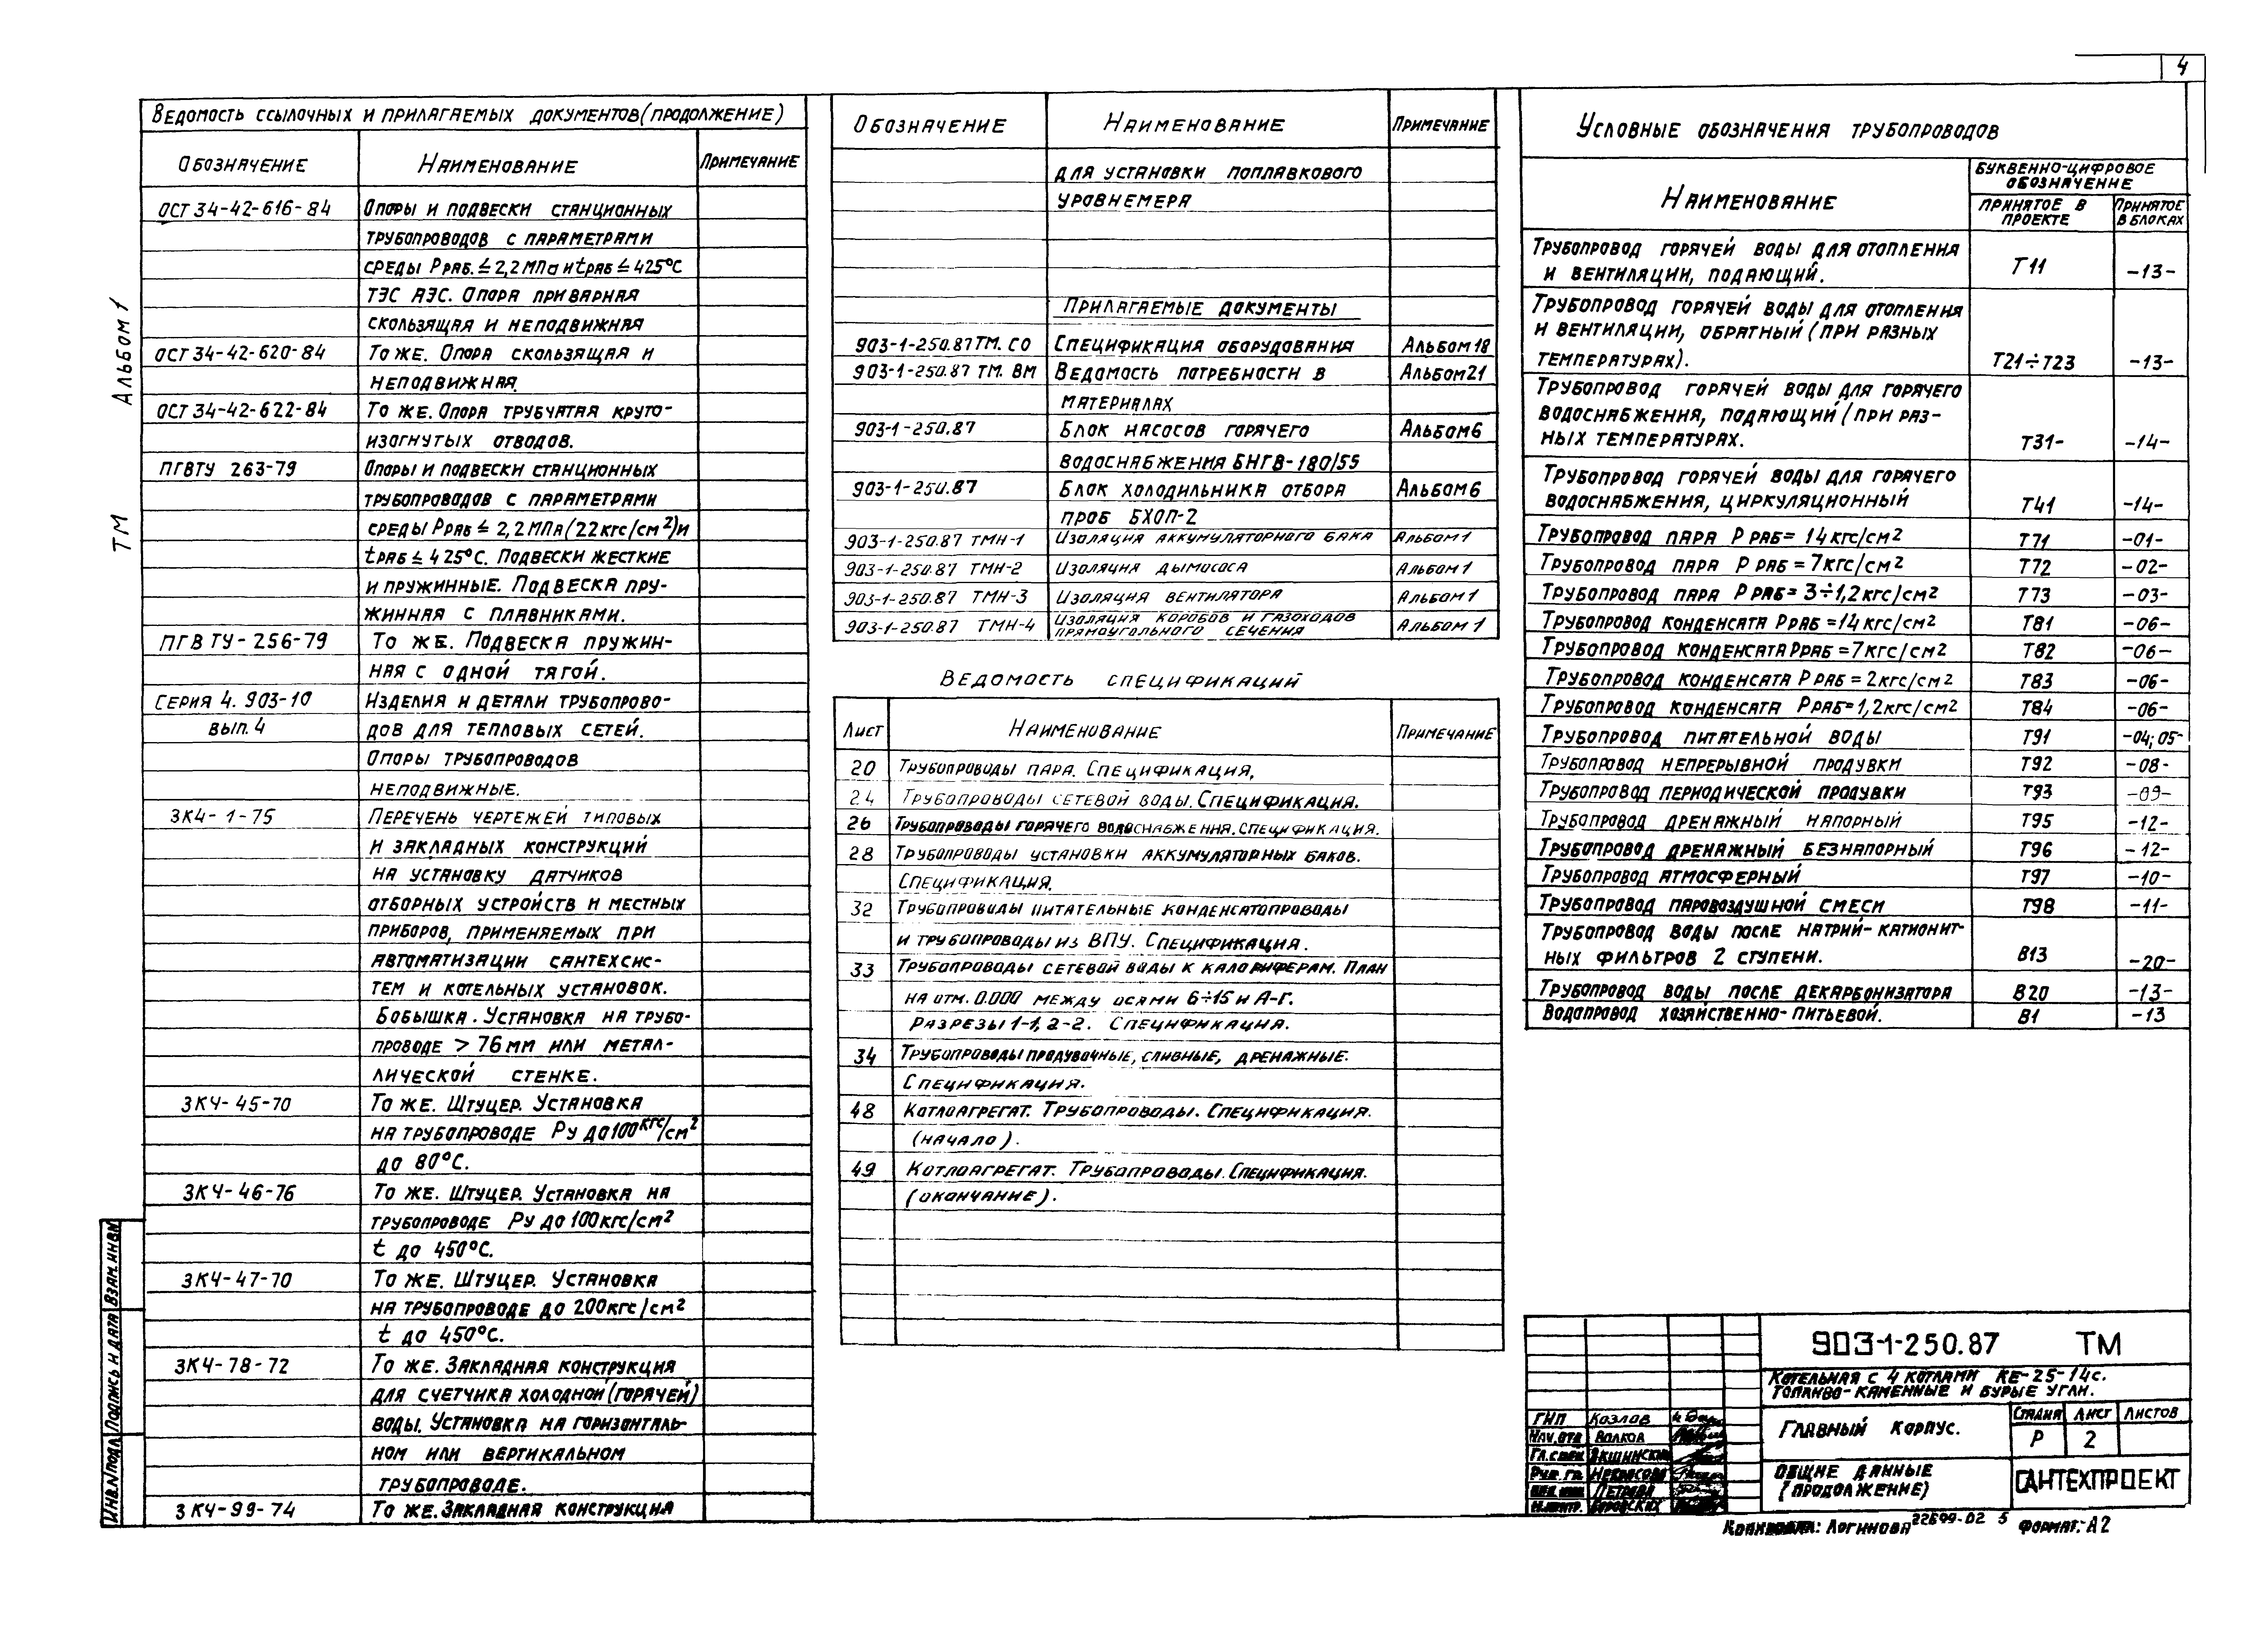 4
Альбом 1
ТМ
Ведомость ссылочных и прилагаемых документов (продолжение)
Обозначение Наименование Примечание
ОСТ 34-42-616-84 Опоры и подвески станционных
трубопроводов с параметрами
среды Рраб. ≤ 2,2 МПа и tраб ≤ 425°С
ТЭС АЭС. Опора приварная
скользящая и неподвижная
ОСТ 34-42-620-84 То же. Опора скользящая и
неподвижная.
ОСТ 34-42-622-84 То же. Опора трубчатая круто-
изогнутых отводов.
ПГВТУ 263-79 Опоры и подвески станционных
трубопроводов с параметрами
среды Рраб ≤ 2,2 МПа (22 кгс/см²) и
tраб ≤ 425°С. Подвески жесткие
и пружинные. Подвеска пру-
жинная с плавниками.
ПГВ ТУ-256-79 То же. Подвеска пружин-
ная с одной тягой.
Серия 4.903-10 Изделия и детали трубопрово-
вып. 4 дов для тепловых сетей.
Опоры трубопроводов
неподвижные.
ЗК4-1-75 Перечень чертежей типовых
и закладных конструкций
на установку датчиков
отборных устройств и местных
приборов, применяемых при
автоматизации сантехсис-
тем и котельных установок.
Бобышка. Установка на трубо-
проводе > 76 мм или метал-
лической стенке.
ЗК4-45-70 То же. Штуцер. Установка
на трубопроводе Ру до 100 кгс/см²
до 80°С.
ЗК4-46-76 То же. Штуцер. Установка на
трубопроводе Ру до 100 кгс/см²
t до 450°С.
ЗК4-47-70 То же. Штуцер. Установка
на трубопроводе до 200 кгс/см²
t до 450°С.
ЗК4-78-72 То же. Закладная конструкция
для счетчика холодной (горячей)
воды. Установка на горизонталь-
ном или вертикальном
трубопроводе.
ЗК4-99-74 То же. Закладная конструкция
Обозначение Наименование Примечание
для установки поплавкового
уровнемера
Прилагаемые документы
903-1-250.87 ТМ. СО Спецификация оборудования Альбом 18
903-1-250.87 ТМ. ВМ Ведомость потребности в Альбом 21
материалах
903-1-250.87 Блок насосов горячего Альбом 6
водоснабжения БНГВ-180/55
903-1-250.87 Блок холодильника отбора Альбом 6
проб БХОП-2
903-1-250.87 ТМН-1 Изоляция аккумуляторного бака Альбом 1
903-1-250.87 ТМН-2 Изоляция дымососа Альбом 1
903-1-250.87 ТМН-3 Изоляция вентилятора Альбом 1
903-1-250.87 ТМН-4 Изоляция коробов и газоходов Альбом 1
прямоугольного сечения
Ведомость спецификаций
Лист Наименование Примечание
20 Трубопроводы пара. Спецификация.
24 Трубопроводы сетевой воды. Спецификация.
26 Трубопроводы горячего водоснабжения. Спецификация.
28 Трубопроводы установки аккумуляторных баков.
Спецификация.
32 Трубопроводы питательные конденсатопроводы
и трубопроводы из ВПУ. Спецификация.
33 Трубопроводы сетевой воды к калориферам. План
на отм. 0.000 между осями 6÷15 и А-Г.
Разрезы 1-1, 2-2. Спецификация.
34 Трубопроводы продувочные, сливные, дренажные.
Спецификация.
48 Котлоагрегат. Трубопроводы. Спецификация.
(начало).
49 Котлоагрегат. Трубопроводы. Спецификация.
(окончание).
Условные обозначения трубопроводов
Наименование Буквенно-цифровое обозначение
принятое в проекте принятое в блоках
Трубопровод горячей воды для отопления
и вентиляции, подающий. Т11 -13-
Трубопровод горячей воды для отопления
и вентиляции, обратный (при разных
температурах). Т21÷Т23 -13-
Трубопровод горячей воды для горячего
водоснабжения, подающий (при раз-
ных температурах. Т31- -14-
Трубопровод горячей воды для горячего
водоснабжения, циркуляционный Т41 -14-
Трубопровод пара Р раб = 14 кгс/см² Т71 -01-
Трубопровод пара Р раб = 7 кгс/см² Т72 -02-
Трубопровод пара Р раб = 3÷1,2 кгс/см² Т73 -03-
Трубопровод конденсата Рраб = 14 кгс/см² Т81 -06-
Трубопровод конденсата Рраб = 7 кгс/см² Т82 -06-
Трубопровод конденсата Рраб = 2 кгс/см² Т83 -06-
Трубопровод конденсата Рраб = 1,2 кгс/см² Т84 -06-
Трубопровод питательной воды Т91 -04; 05-
Трубопровод непрерывной продувки Т92 -08-
Трубопровод периодической продувки Т93 -09-
Трубопровод дренажный напорный Т95 -12-
Трубопровод дренажный безнапорный Т96 -12-
Трубопровод атмосферный Т97 -10-
Трубопровод паровоздушной смеси Т98 -11-
Трубопровод воды после натрий-катионит-
ных фильтров 2 ступени. В13 -20-
Трубопровод воды после декарбонизатора В20 -13-
Водопровод хозяйственно-питьевой. В1 -13
903-1-250.87 ТМ
Котельная с 4 котлами КЕ-25-14с.
Топливо-каменные и бурые угли.
Главный корпус.
Стадия Лист Листов
Р 2
Общие данные
(продолжение)
САНТЕХПРОЕКТ
ГИП Козлов
Нач. отд Волков
Гл. спец
Рук. гр. Некрасова
Петрова
Н. контр. Боровских
Копировала: Логинова 22699-02 5 Формат: А2
Инв. N подл Подпись и дата Взам. инв N